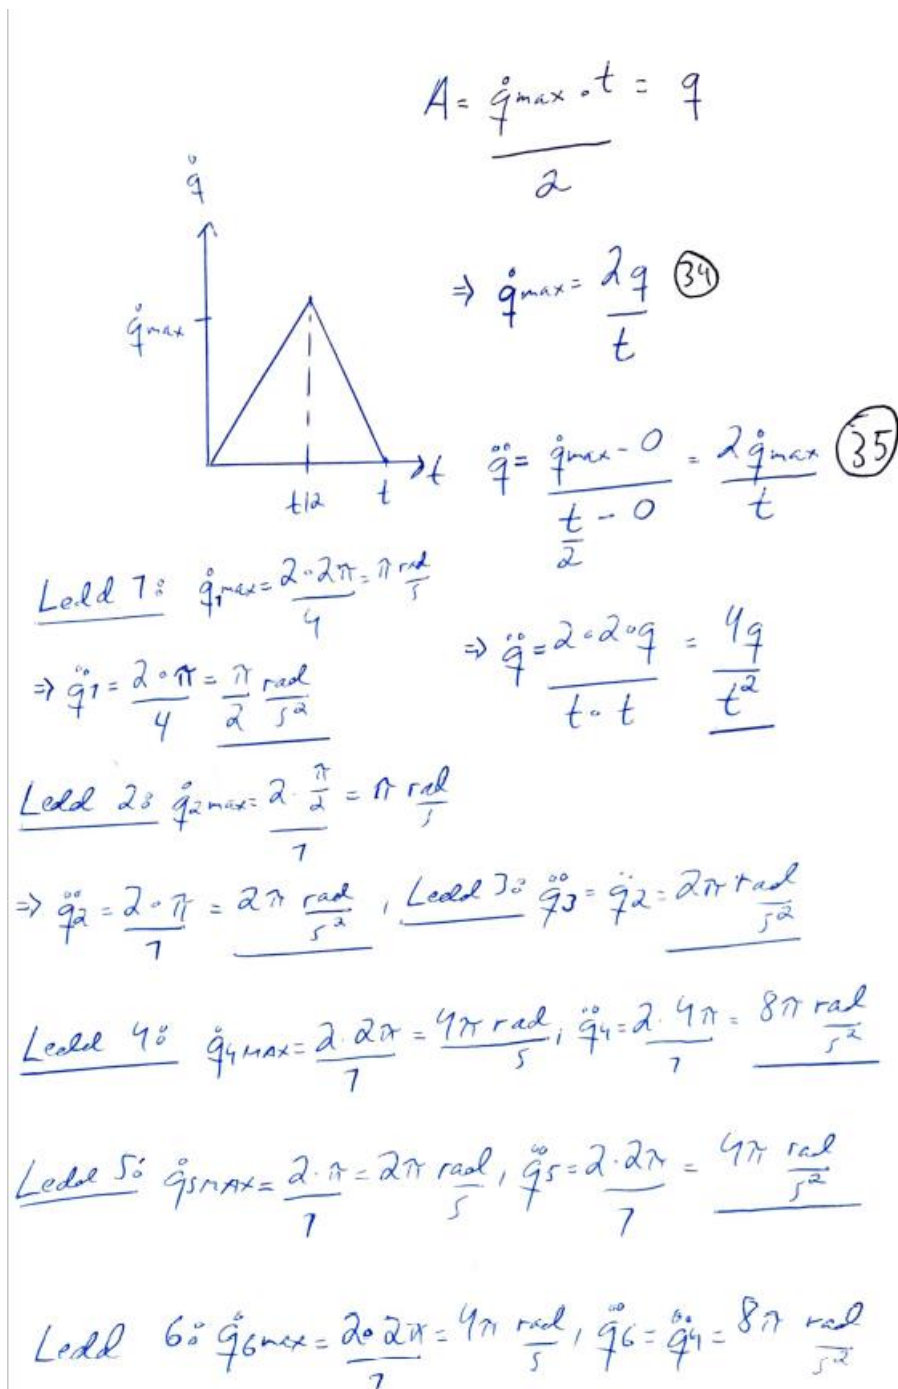 A = q̇max · t / 2 = q
q̇
⇒ q̇max = 2q / t (34)
q̇max
q̈ = (q̇max - 0) / (t/2 - 0) = 2q̇max / t (35)
t/2 t t
Ledd 1: q̇1max = 2·2π / 4 = π rad/s
⇒ q̈ = 2·2·q / t·t = 4q / t²
⇒ q̈1 = 2·π / 4 = π/2 rad/s²
Ledd 2: q̇2max = 2·π/2 / 1 = π rad/s
⇒ q̈2 = 2·π / 1 = 2π rad/s², Ledd 3: q̈3 = q̈2 = 2π rad/s²
Ledd 4: q̇4MAX = 2·2π / 1 = 4π rad/s, q̈4 = 2·4π / 1 = 8π rad/s²
Ledd 5: q̇5MAX = 2·π / 1 = 2π rad/s, q̈5 = 2·2π / 1 = 4π rad/s²
Ledd 6: q̇6max = 2·2π / 1 = 4π rad/s, q̈6 = q̈4 = 8π rad/s²